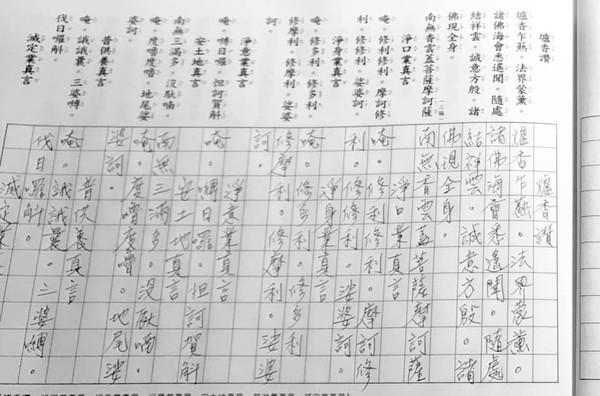 爐香讚
爐香乍爇。法界蒙薰。
諸佛海會悉遙聞。隨處
結祥雲。誠意方殷。諸
佛現全身。
南無香雲蓋菩薩摩訶薩
淨口業真言
唵。修利修利。摩訶修
利。修修利。婆婆訶。
淨身業真言
唵。修多利。修多利。
修摩利。修摩利。婆婆
訶。
淨意業真言
唵。嚩日囉。怛訶賀斛
安土地真言
南無三滿多。沒馱喃。
唵。度嚕度嚕。地尾婆
婆訶。
普供養真言
唵。誐誐曩。三婆嚩。
伐日囉斛。
滅定業真言
爐香讚
爐香乍爇。法界蒙薰。
諸佛海會悉遙聞。隨處
結祥雲。誠意方殷。諸
佛現全身。
南無香雲蓋菩薩摩訶薩
淨口業真言
唵。修利修利。摩訶修
利。修修利。婆婆訶
淨身業真言
唵。修多利。修多利
修摩利。修摩利。婆婆
訶。
淨意業真言
唵。嚩日囉。怛訶賀斛
安土地真言
南無三滿多。沒馱喃
唵。度嚕度嚕。地尾婆
婆訶。
普供養真言
唵。誐誐曩。三婆嚩。
伐日囉斛。
滅定業